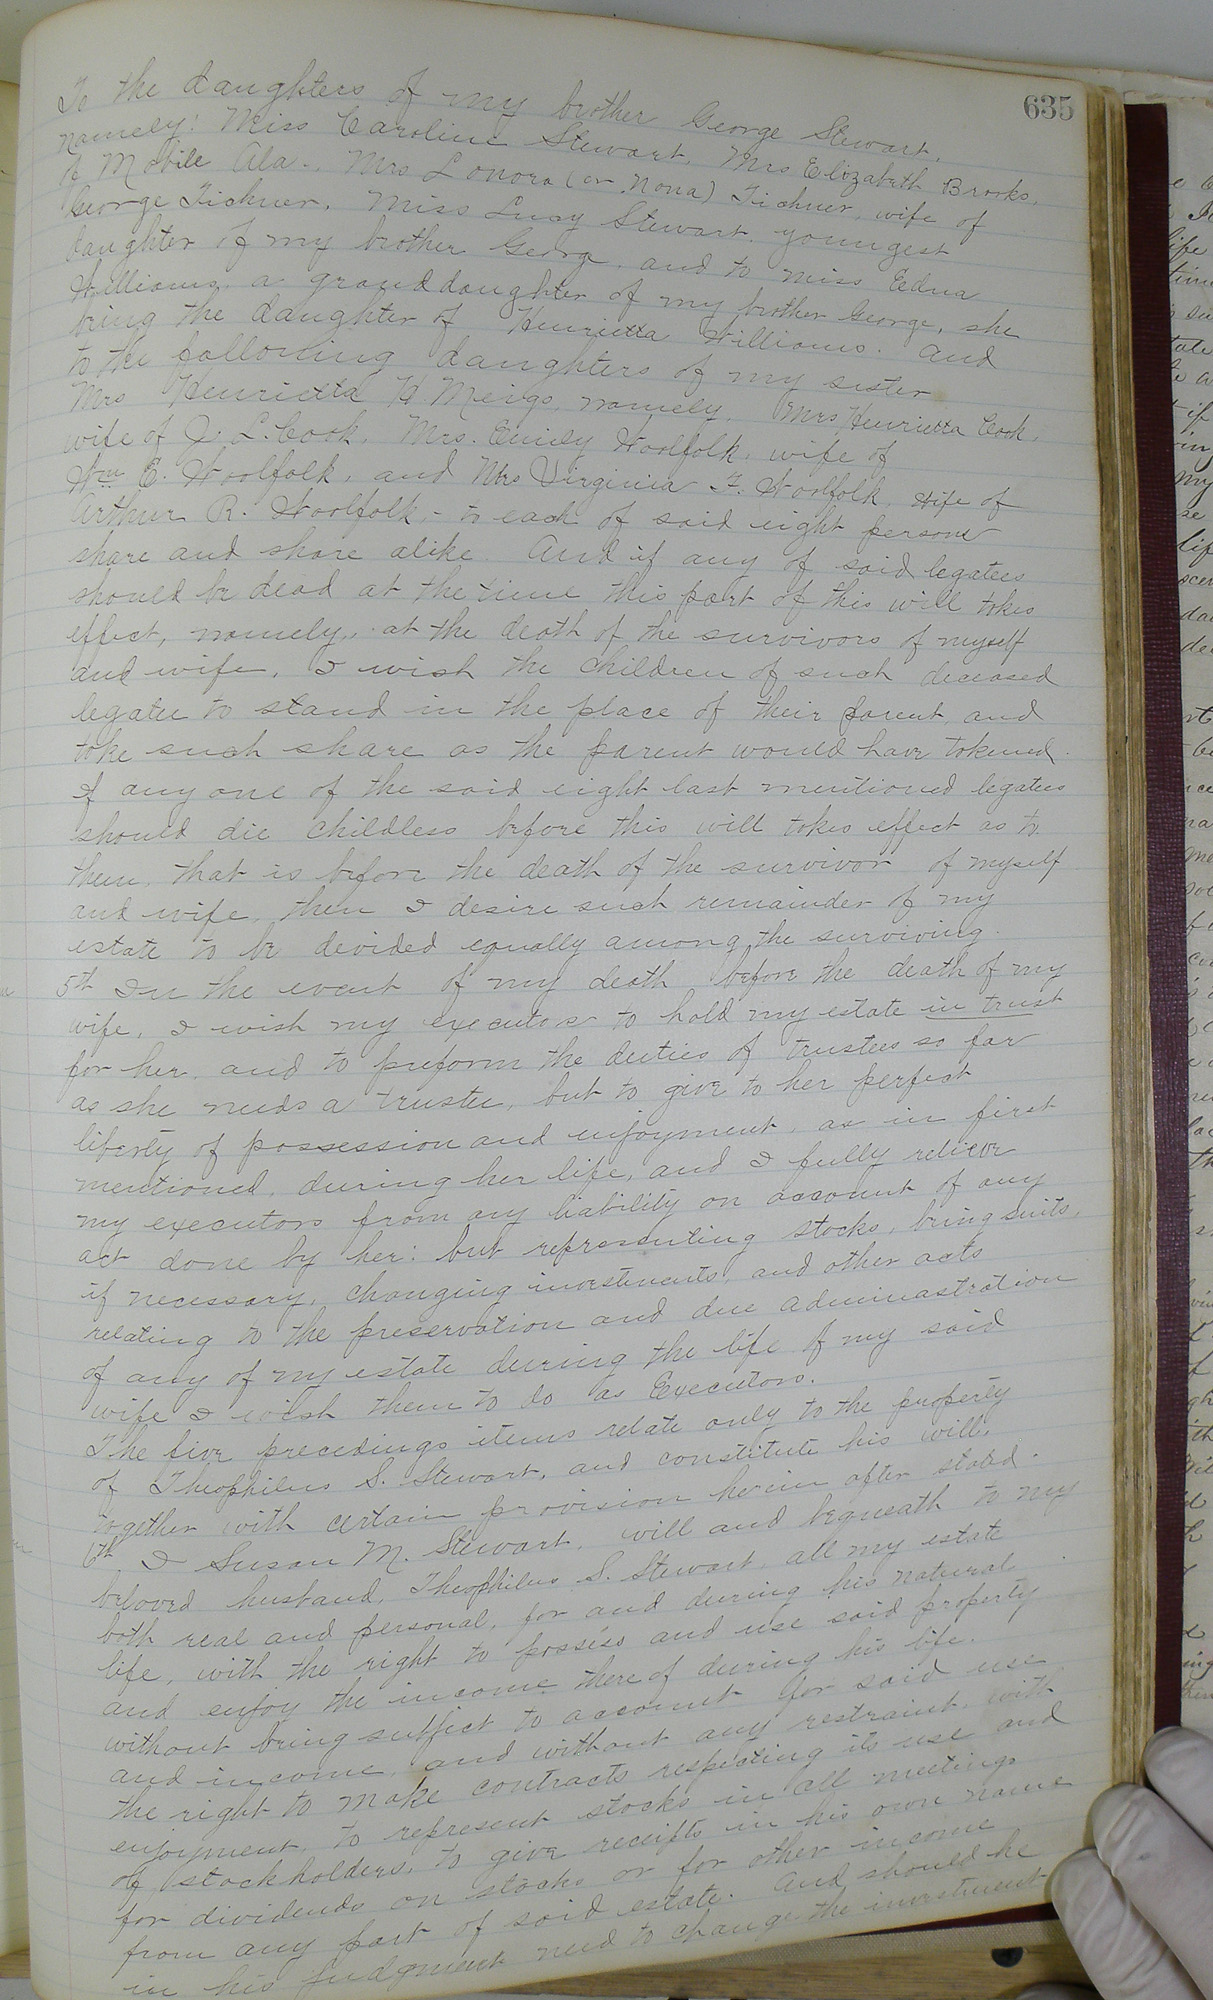 635
To the daughters of my brother George Stewart,
namely: Miss Caroline Stewart, Mrs Elizabeth Brooks,
of Mobile Ala., Mrs Lonora (or Nona) Tichner, wife of
George Tichner, Miss Lucy Stewart, youngest
daughter of my brother George, and to miss Edna
Williams, a granddaughter of my brother George, she
being the daughter of Henrietta Williams. And
to the following daughters of my sister
Mrs Henrietta H. Meigs, namely, Mrs Henrietta Cook,
wife of J. L. Cook, Mrs. Emily Woolfolk, wife of
Wm E. Woolfolk, and Mrs Virginia F. Woolfolk, wife of
Arthur R. Woolfolk, - to each of said eight persons
share and share alike. And if any of said legatees
should be dead at the time this part of this will takes
effect, namely, at the death of the survivors of myself
and wife, I wish the children of such deceased
legatee to stand in the place of their parent, and
take such share as the parent would have tokened.
If any one of the said eight last mentioned legatees
should die childless before this will takes effect as to
them, that is before the death of the survivor of myself
and wife, then I desire such remainder of my
estate to be devided equally among the surviving.
5th In the event of my death before the death of my
wife, I wish my executors to hold my estate in trust
for her, and to preform the duties of trustees so far
as she needs a trustee, but to give to her perfect
liberty of possession and enjoyment, as in first
mentioned, during her life, and I fully relieve
my executors from any liability on account of any
act done by her: but representing stocks, bring suits,
if necessary, changing investments, and other acts
relating to the preservation and due adminastration
of any of my estate during the life of my said
wife I wish them to do as Executors.
The five precedings items relate only to the property
of Theophilus S. Stewart, and constitute his will,
together with certain provision herein after stated.
6th I Susan M. Stewart, will and bequeath to my
beloved husband, Theophilus S. Stewart, all my estate
both real and personal, for and during his natural
life, with the right to possess and use said property
and enjoy the income there of during his life,
without being subject to account for said use
and income, and without any restraint, with
the right to make contracts respecting its use and
enjoyment, to represent stocks in all meetings
of stockholders, to give receipts in his own name
for dividends on stocks or for other income
from any part of said estate. And should he
in his judgment need to change the investment